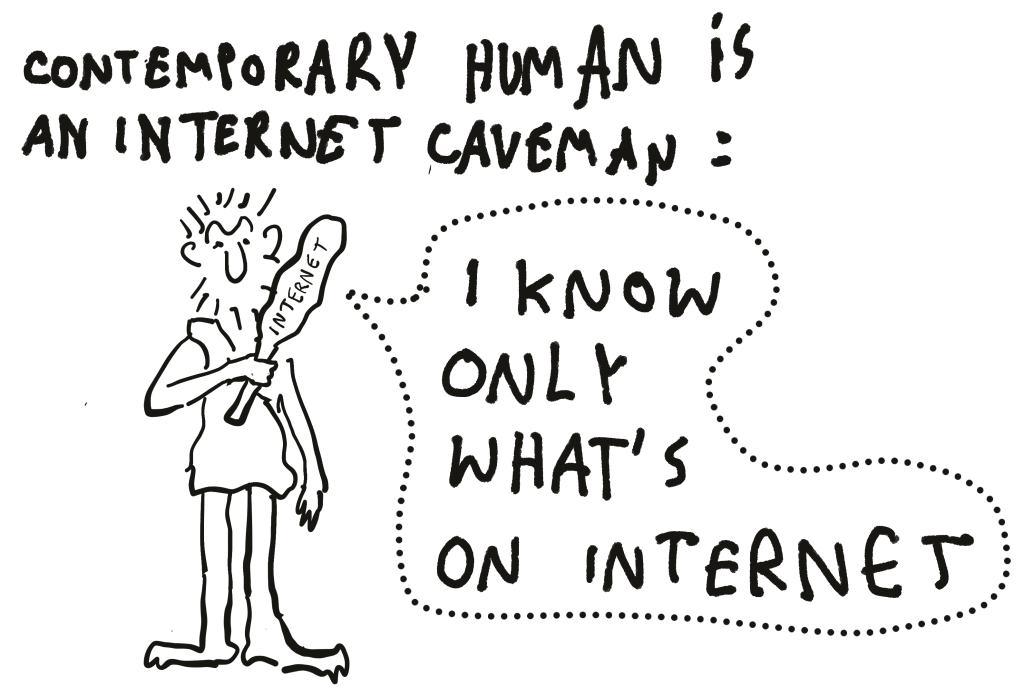 CONTEMPORARY HUMAN IS
AN INTERNET CAVEMAN :
INTERNET
I KNOW
ONLY
WHAT'S
ON INTERNET